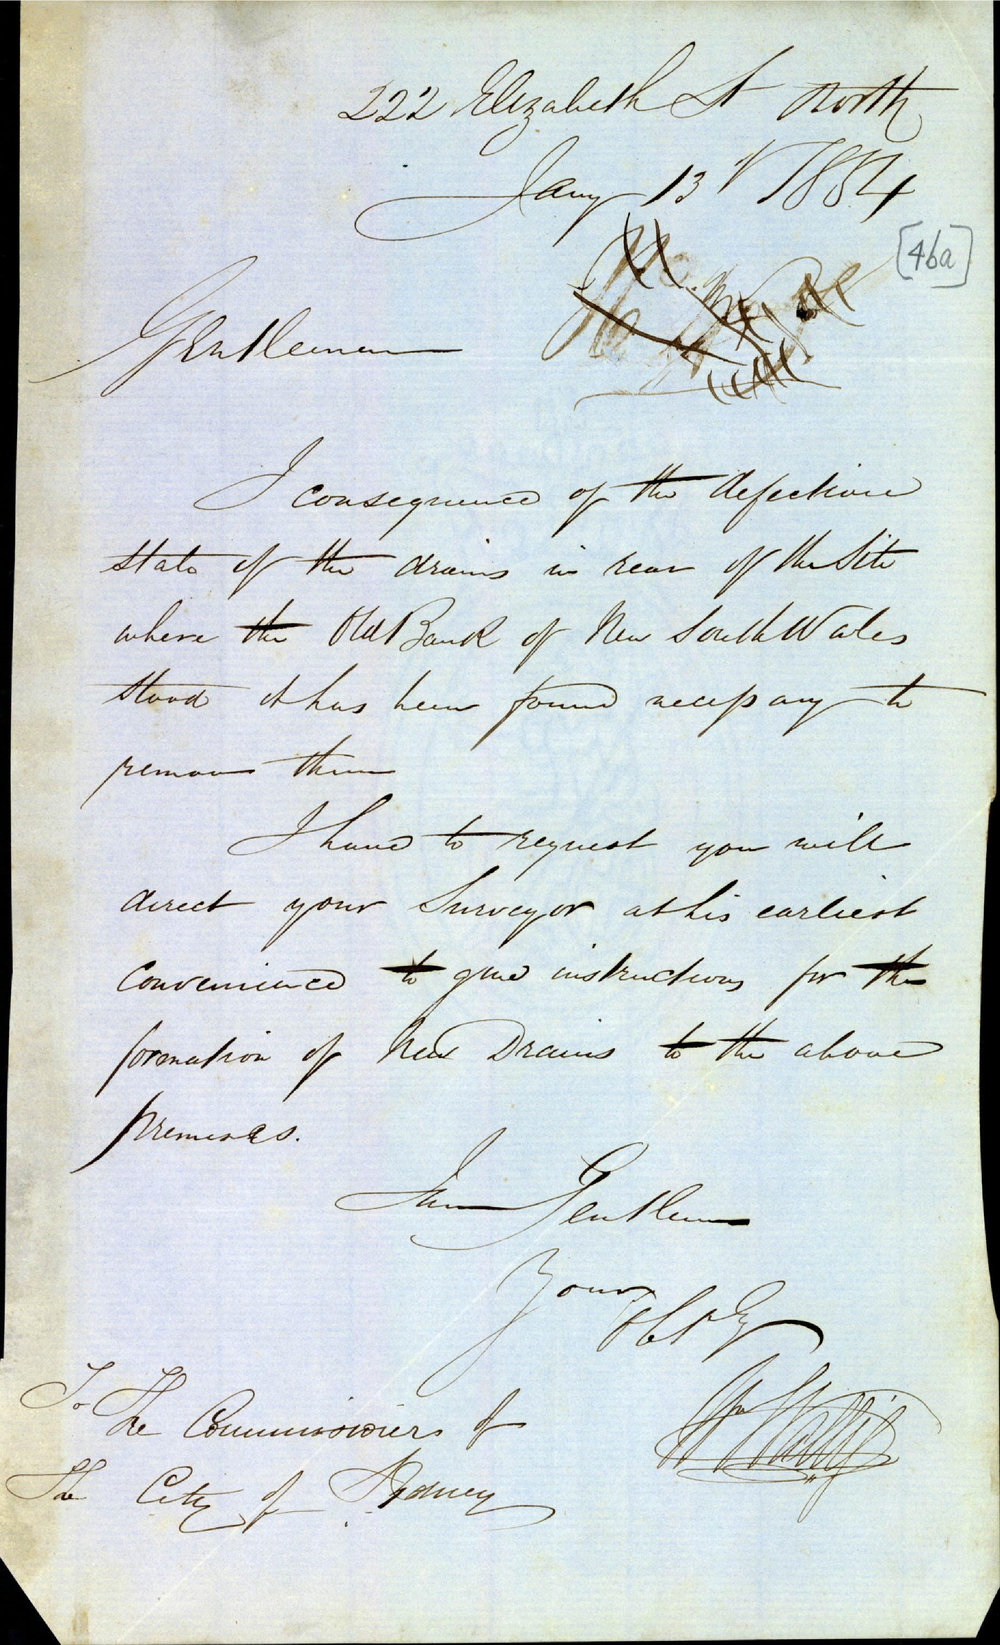 222 Elizabeth St North
Jany 13 1854
[46a]
Gentlemen
I consequence of the defective
state of the drains in rear of the Site
where the Old Bank of New South Wales
stood it has been found necessary to
remove them
I have to request you will
direct your Surveyor at his earliest
convenience to give instructions for the
formation of New Drains to the above
premises.
I am Gentlemen
Your
Wm Wallis
To The Commissioners of
The City of Sydney